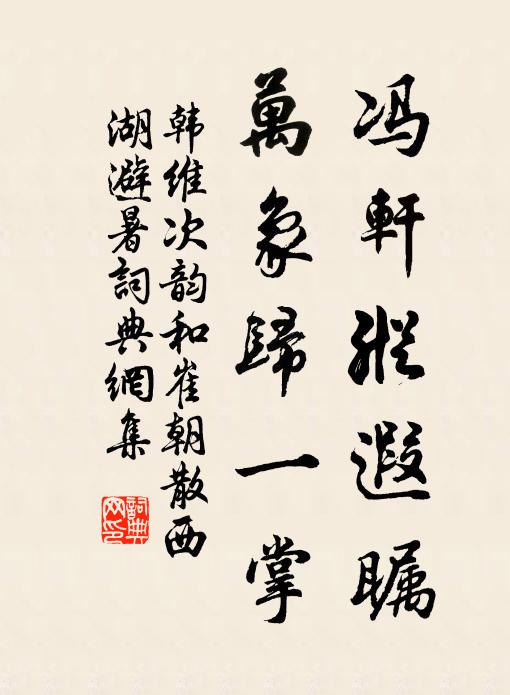 冯軒縱遐瞩
萬象歸一掌
韩维次韵和崔朝散西
湖避暑詞典網集
詞典网印